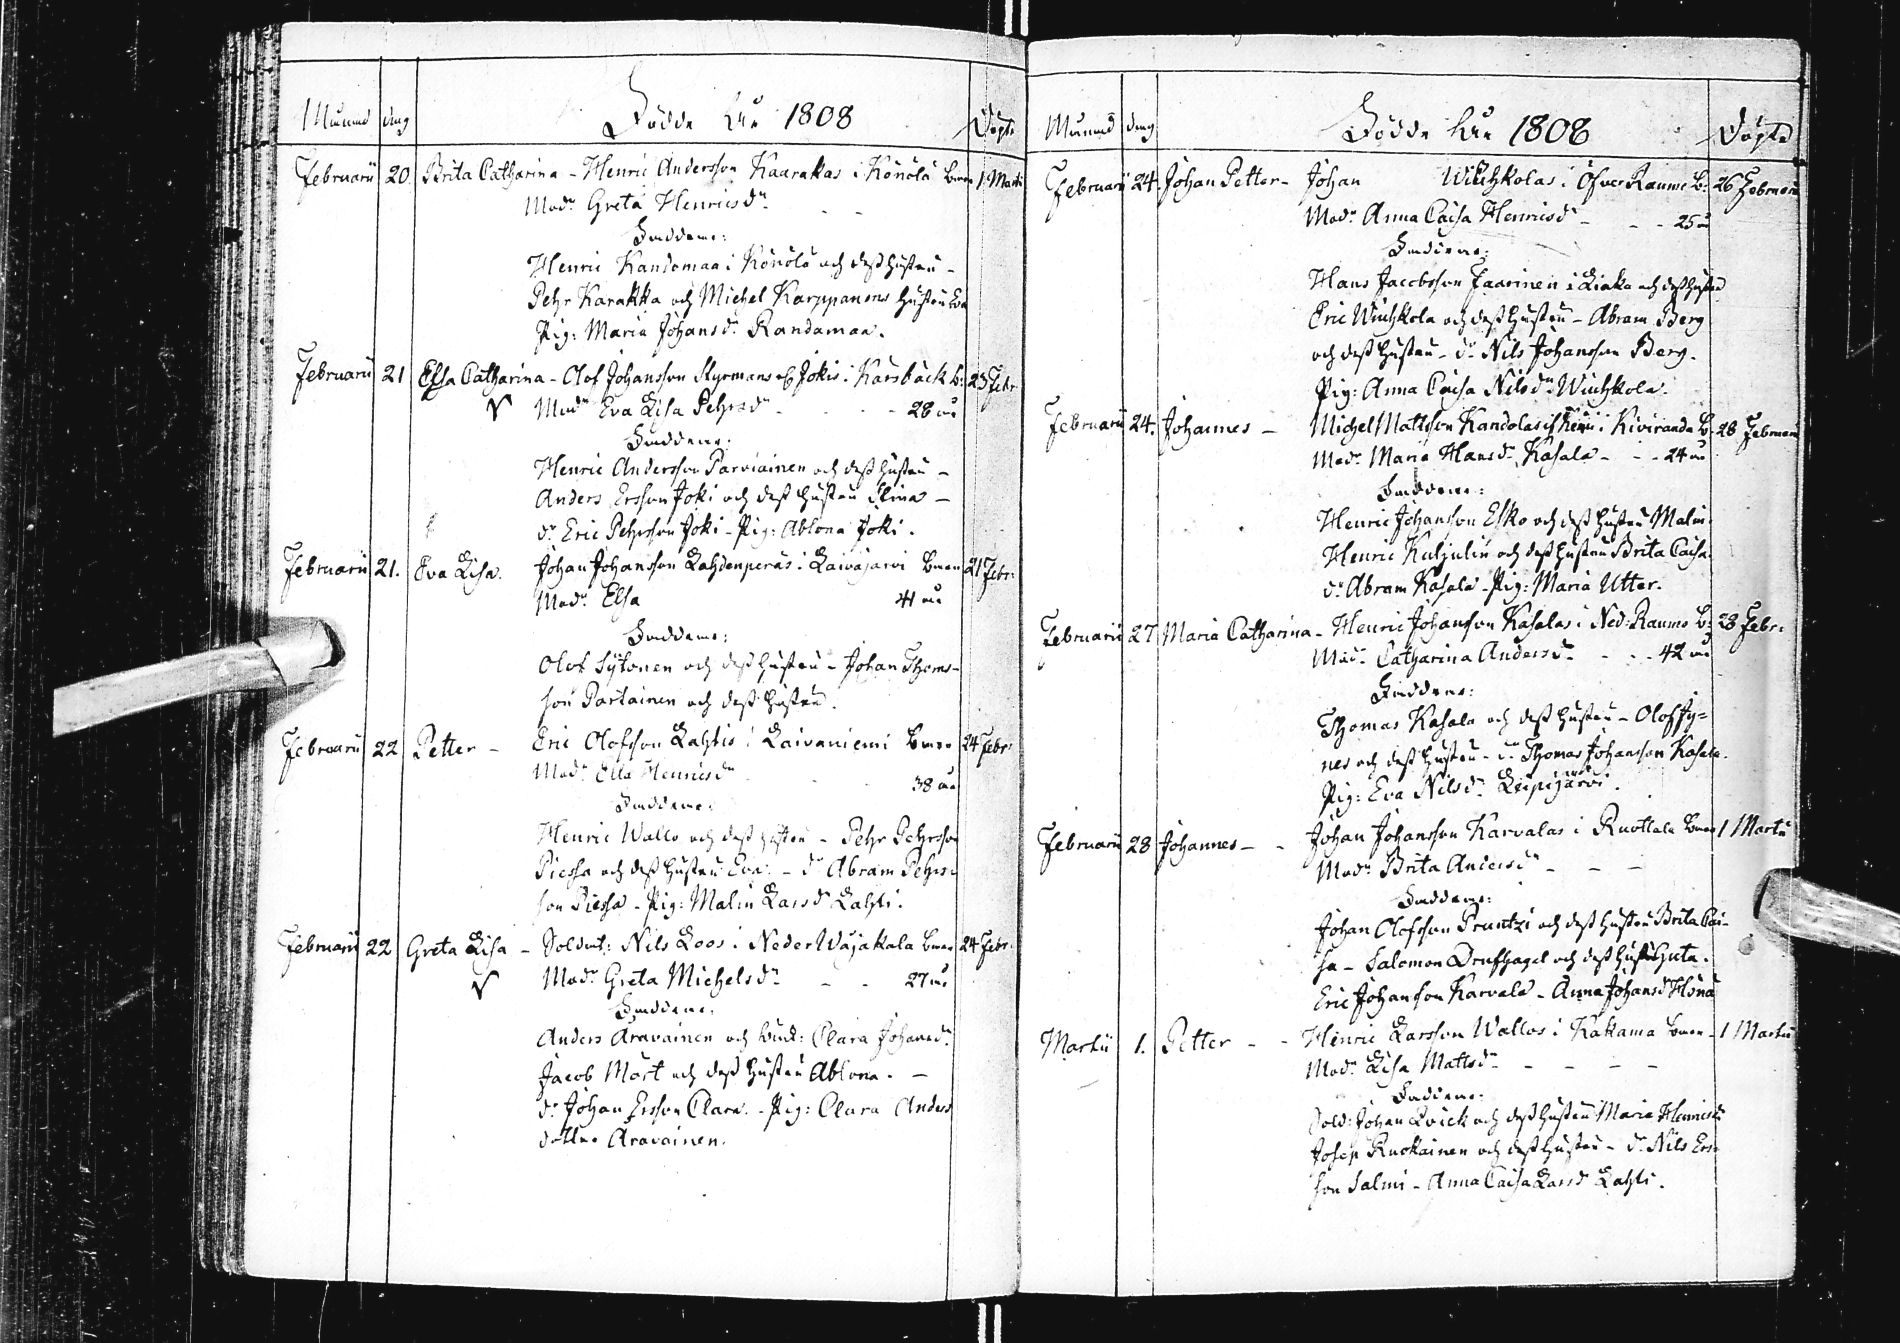 Månad dag Födde År 1808 Döpte
Februarii 20 Brita Catharina - Henric Andersson Kaarakas i Könölä bmen 1 Martii
Modr Greta Henricsdr
Faddern:
Henric Kandomaa i Könölä och dess Hustru -
Pehr Karakka och Michel Karppanens Hustru Eva
Pig: Maria Johansdr Randamaa.
Februarii 21 Elsa Catharina - Olof Johansson Jokis i Karsbäck b: 23 Febr:
Modr Eva Lisa Pehrsdr - - - 28 år
Faddern:
Henric Andersson Parviainen och dess Hustru -
Anders Ersson Joki och dess Hustru Elina -
dr Eric Pehrsson Joki - Pig: Ablona Joki.
Februarii 21. Eva Lisa. Johan Johansson Lahdenperäs i Laivajarvi bmen 21 Febr:
Modr Elsa 41 år
Faddern:
Olof Sÿtonen och dess Hustru - Johan Thoms-
son Partainen och dess Hustru.
Februarii 22 Petter - Eric Olofsson Lahtis i Laivaniemi bmen 24 Febr:
Modr Ella Henricsdr 38 år
Faddern:
Henric Wallo och dess Hustru - Pehr Pehrsson
Piessa och dess Hustru Eva. - dr Abram Pehrs-
son Piessa - Pig: Malin Larsdr Lahti.
Februarii 22 Greta Lisa - Soldat: Nils Loos i Neder Wojakala bmen 24 Febr:
Modr Greta Michelsdr - - 27 år
Faddern:
Anders Aravainen och Clara Johansdr
Jacob Mört och dess Hustru Ablona. -
dr Johan Ersson Clara. - Pig: Clara Anders
dotter Aravainen.
Månad dag Födde År 1808 Döpte
Februarii 24. Johan Petter - Johan Wiuhkolas i Öfver Raumo b: 26 Februarii
Modr Anna Caisa Henricsdr - - - 25 år
Faddern:
Hans Jacobsson Jaarinen i Liaka och dess Hustru
Eric Wiuhkola och dess Hustru - Abram Berg
och dess Hustru - dr Nils Johansson Berg.
Pig: Anna Caisa Nilsdr Wiuhkola.
Februarii 24. Johannes - Michel Mattsson Kandolas i Kiviranda b: 28 Februarii
Modr Maria Hansdr Kasala - - - 24 år
Faddern:
Henric Johansson Esko och dess Hustru Malin.
Henric Kuljulin och dess Hustru Brita Caisa.
dr Abram Kasala - Pig: Maria Utter.
Februarii 27 Maria Catharina - Henric Johansson Kasalas i Ned: Raumo b: 28 Febr:
Modr Catharina Andersdr - - - 42 år
Faddern:
Thomas Kasala och dess Hustru - Olof Jy=
nes och dess Hustru - dr Thomas Johansson Kasala.
Pig: Eva Nilsdr Leipijärvi.
Februarii 28 Johannes - - Johan Johansson Karvalas i Ruottala bmen 1 Martii
Modr Brita Andersdr - - -
Faddern:
Johan Olofsson Pruntzi och dess Hustru Brita Cai-
sa - Salomon Drufhagel och dess Hustru Greta.
Eric Johansson Karvala - Anna Johansdr
Martii 1. Petter - - Henric Larsson Wallos i Kakama bmen - 1 Martii
Modr Lisa Mattsdr - - - -
Faddern:
Sold: Johan Qvick och dess Hustru Maria Henricsdr
Josep Ruokainen och dess Hustru - dr Nils Ers-
son Salmi - Anna Caisa Larsdr Lahti.